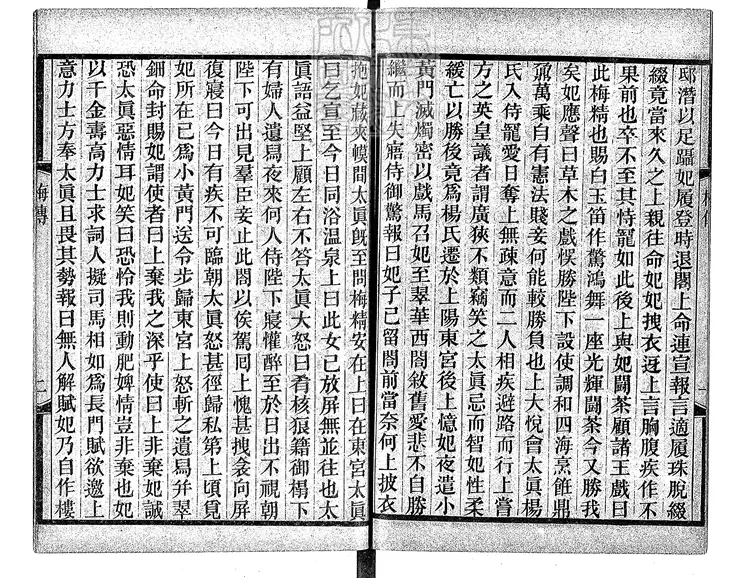 邸潛以足躡妃履登時退閣上命連宣報言適履珠脫綴
綴竟當來久之上親往命妃妃拽衣迓上言胸腹疾作不
果前也卒不至其恃寵如此後上與妃鬬茶顧諸王戲曰
此梅精也賜白玉笛作驚鴻舞一座光輝鬬茶今又勝我
矣妃應聲曰草木之戲悞勝陛下設使調和四海烹飪鼎
鼐萬乘自有憲法賤妾何能較勝負也上大悅會太眞楊
氏入侍寵愛日奪上無疎意而二人相疾避路而行上嘗
方之英皇議者謂廣狹不類竊笑之太眞忌而智妃性柔
緩亡以勝後竟爲楊氏遷於上陽東宮後上憶妃夜遣小
黃門滅燭密以戲馬召妃至翠華西閣敘舊愛悲不自勝
繼而上失寤侍御驚報曰妃子已屆閣前當奈何上披衣
抱妃藏夾幙間太眞旣至問梅精安在上曰在東宮太眞
曰乞宣至今日同浴溫泉上曰此女已放屏無並往也太
眞語益堅上顧左右不答太眞大怒曰肴核狼籍御榻下
有婦人遺舄夜來何人侍陛下寢懽醉至於日出不視朝
陛下可出見羣臣妾止此閣以俟駕囘上愧甚拽衾向屏
復寢曰今日有疾不可臨朝太眞怒甚徑歸私第上頃覓
妃所在已爲小黃門送令步歸東宮上怒斬之遺舄幷翠
鈿命封賜妃妃謂使者曰上棄我之深乎使曰上非棄妃誠
恐太眞惡情耳妃笑曰恐怜我則動肥婢情豈非棄也妃
以千金壽高力士求詞人擬司馬相如爲長門賦欲邀上
意力士方奉太眞且畏其勢報曰無人解賦妃乃自作樓
梅傳
二